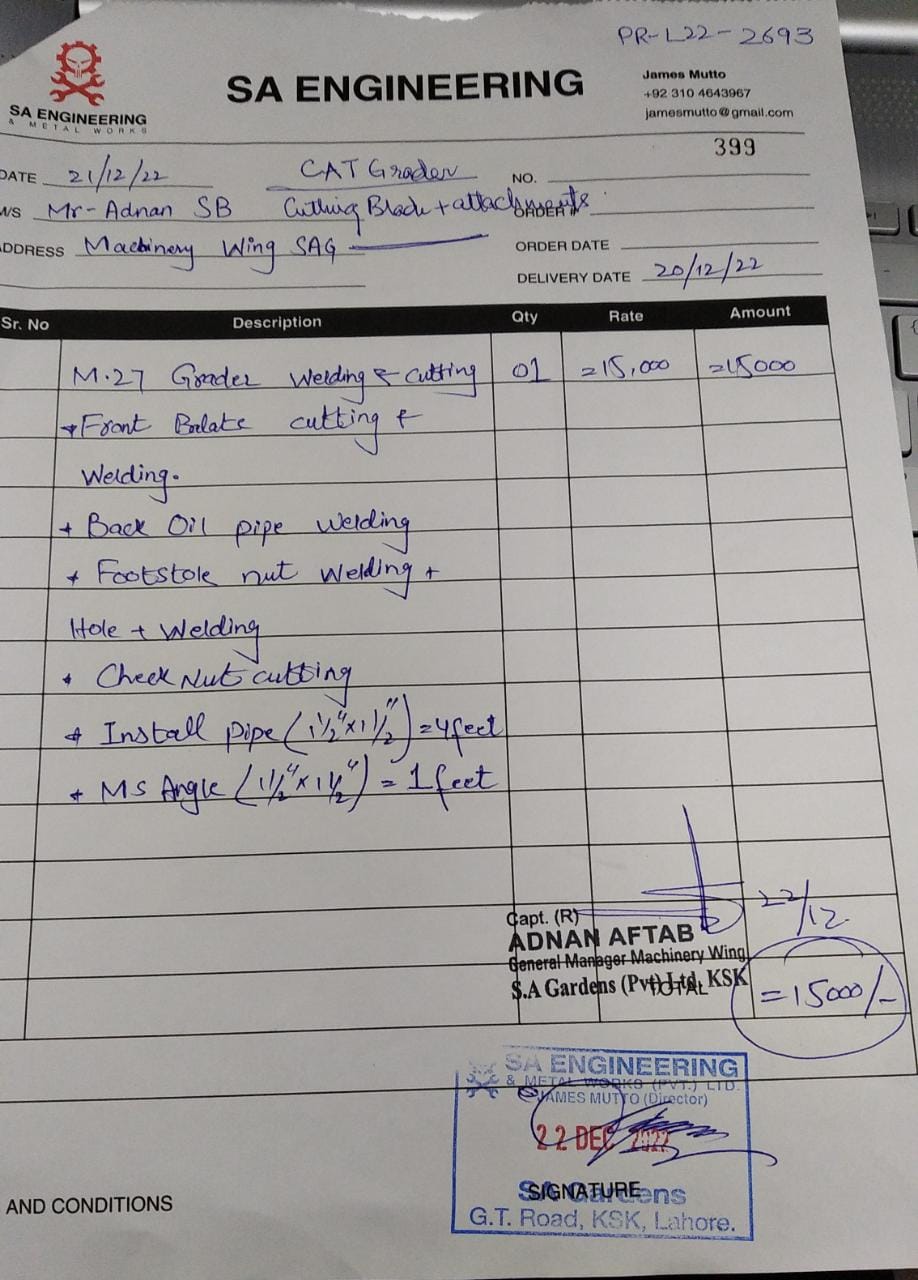 PR-L22-2693
SA ENGINEERING
& METAL WORKS
SA ENGINEERING
James Mutto
+92 310 4643967
jamesmutto@gmail.com
399
DATE 21/12/22 CAT Grader NO.
M/S Mr-Adnan SB Cutting Blade + attachments ORDER #
ADDRESS Machinery Wing SAG ORDER DATE
DELIVERY DATE 20/12/22
Sr. No Description Qty Rate Amount
M.27 Grader Welding & cutting 01 =15,000 =15000
* Front Balate cutting +
Welding.
* Back Oil pipe welding
* Footstole nut welding +
Hole + Welding
* Check Nut cutting
* Install pipe (1½"x1½") = 4feet
* MS Angle (1½"x1½") = 1 feet
22/12.
Capt. (R)
ADNAN AFTAB
General Manager Machinery Wing
S.A Gardens (Pvt) Ltd, KSK
TOTAL =15000/-
SA ENGINEERING
& METAL WORKS (PVT.) LTD.
JAMES MUTTO (Director)
22 DEC 2022
SIGNATURE
SA Gardens
G.T. Road, KSK, Lahore.
AND CONDITIONS